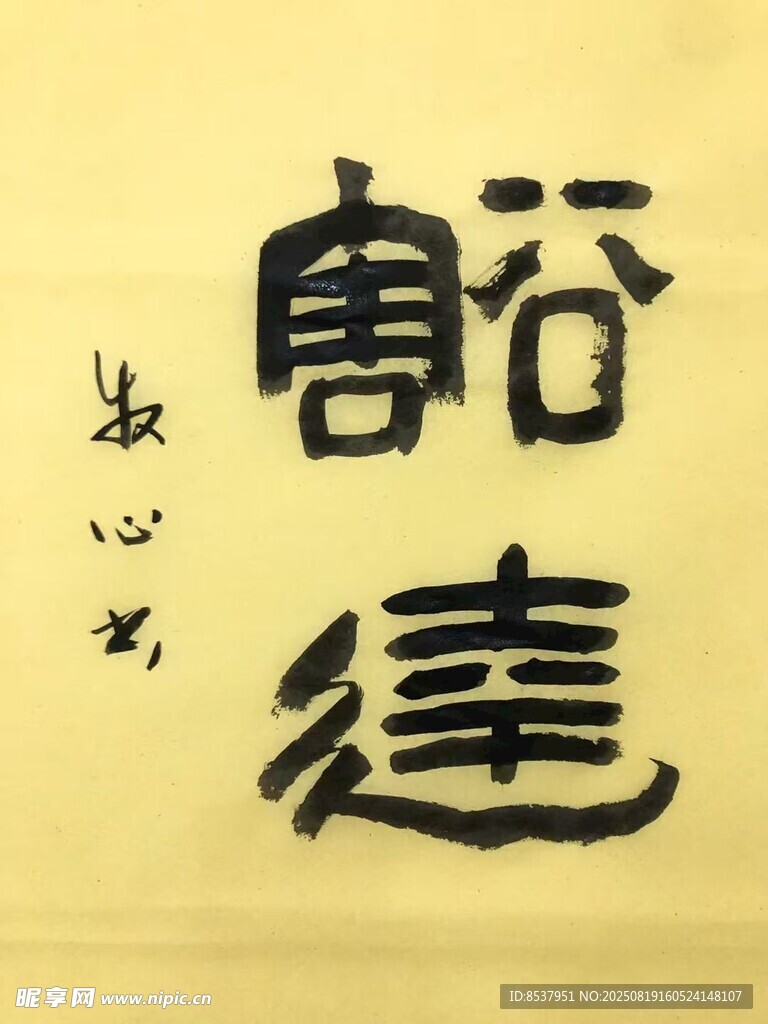 豁達
牧心书
昵享网 www.nipic.cn
ID:8537951 NO:20250819160524148107